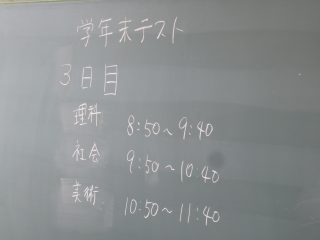 学年末テスト
3日目
理科 8:50~9:40
社会 9:50~10:40
美術 10:50~11:40